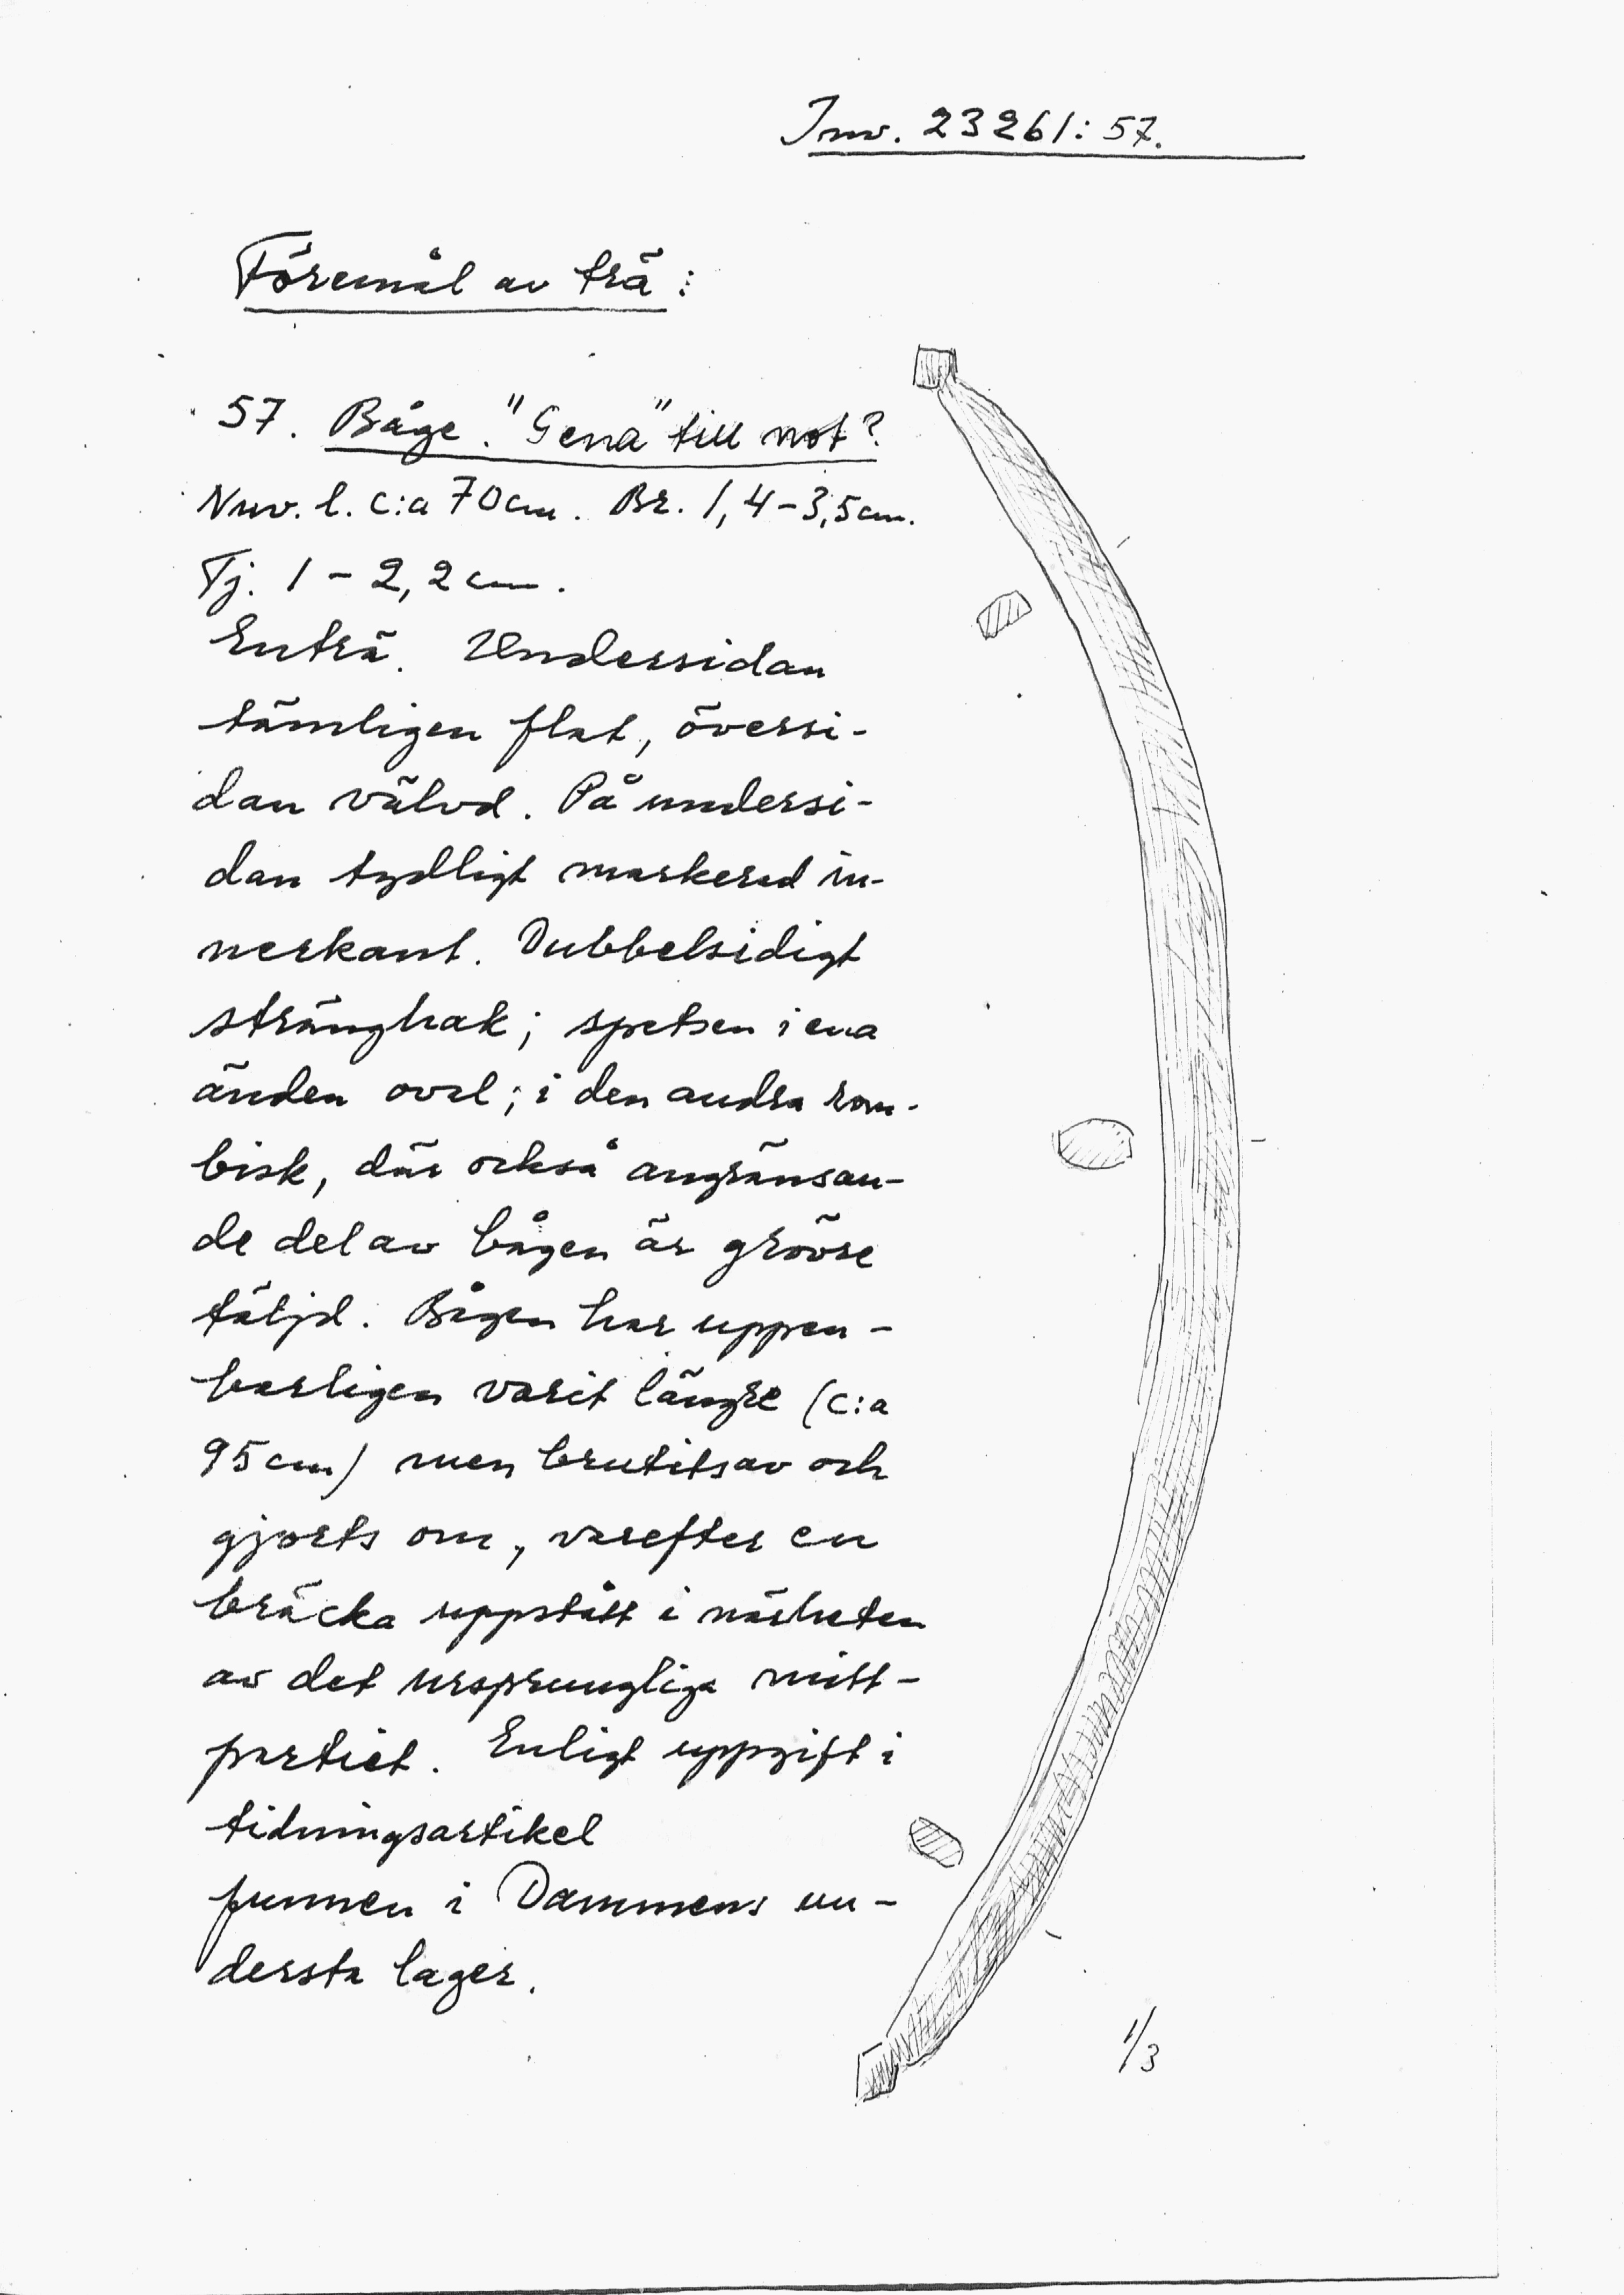 Inv. 23261:57.
Föremål av trä:
57. Båge. "Gena" till not?
Nuv. l. c:a 70cm. Br. 1,4-3,5cm.
Tj. 1-2,2cm.
Enträ. Undersidan
tämligen flat, översi-
dan välvd. På undersi-
dan tydligt markerad in-
nerkant. Dubbelsidigt
stränghak; spetsen i ena
änden oval; i den andra rom-
bisk, där också angränsan-
de del av bågen är grövre
täljd. Bågen har uppen-
barligen varit längre (c:a
95cm) men brutits av och
gjorts om, varefter en
bräcka uppstått i närheten
av det ursprungliga mitt-
partiet. Enligt uppgift i
tidningsartikel
funnen i Dammens un-
dersta lager.
1/3